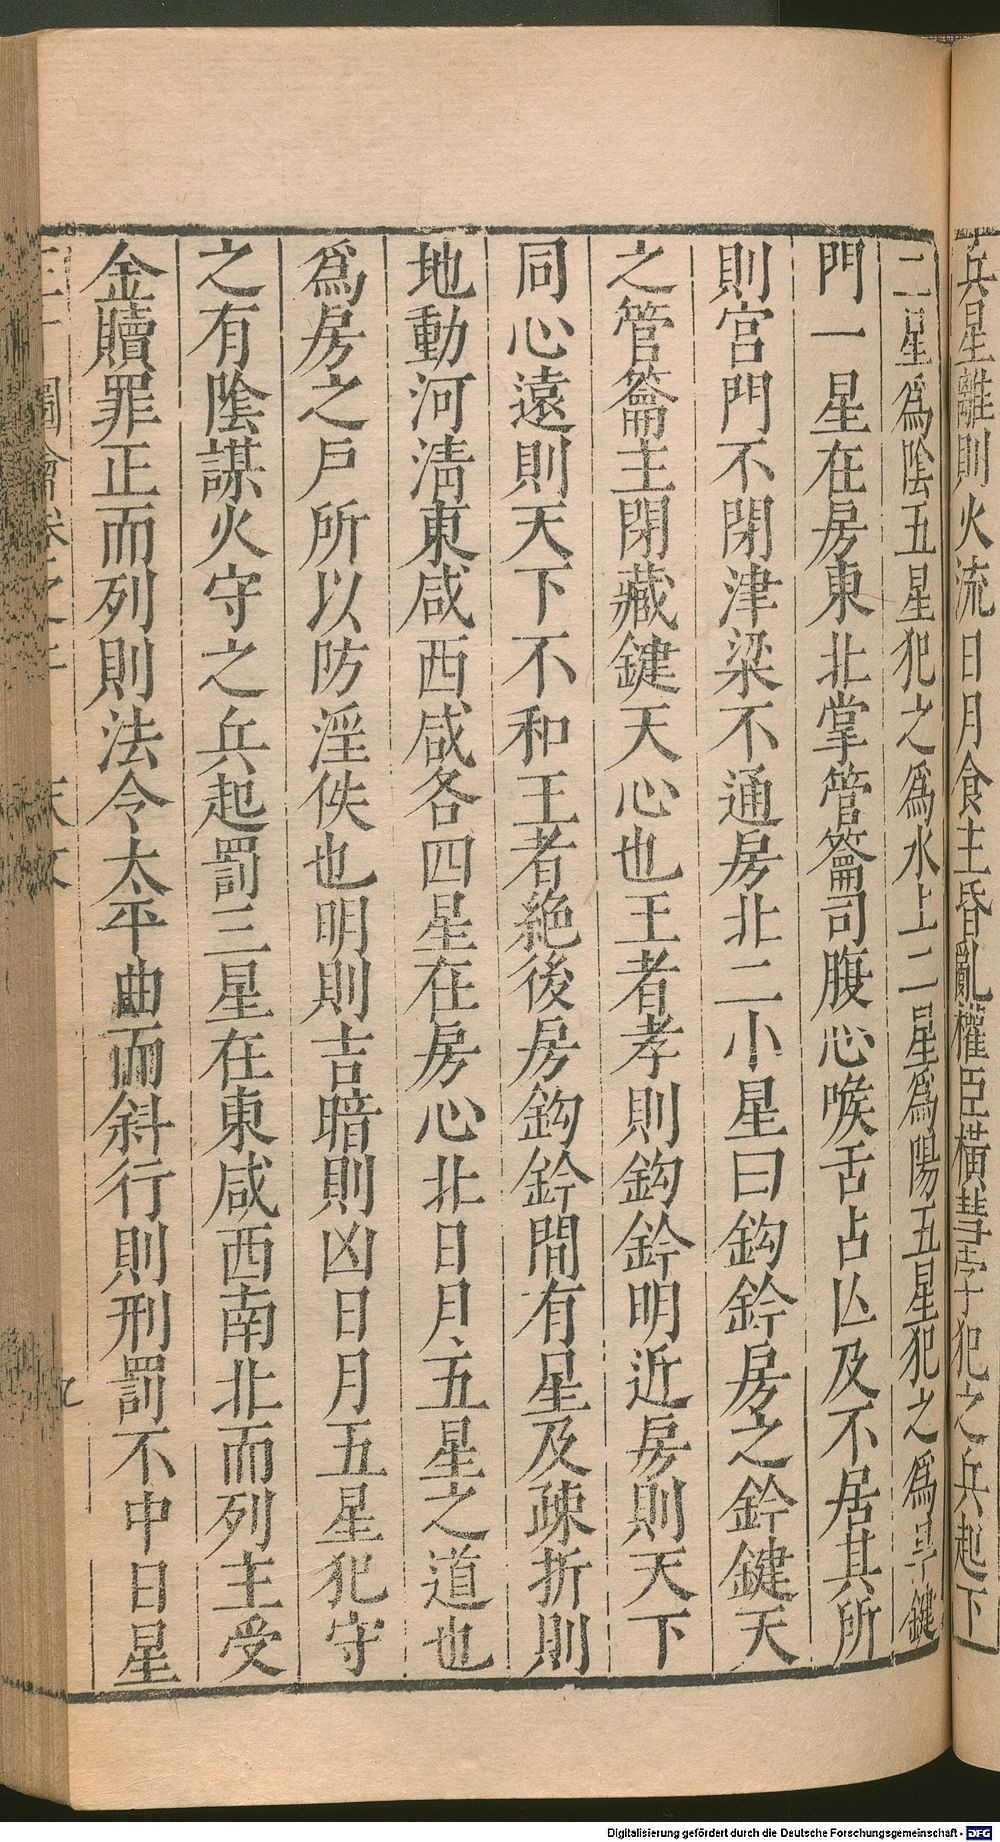 兵星離則火流日月食主昏亂權臣橫彗孛犯之兵起下
二星爲陰五星犯之爲水上二星爲陽五星犯之爲旱鍵
門一星在房東北掌管籥司腹心喉舌占亾及不居其所
則宮門不閉津梁不通房北二小星曰鈎鈐房之鈐鍵天
之管籥主閉藏鍵天心也王者孝則鈎鈐明近房則天下
同心遠則天下不和王者絶後房鈎鈐間有星及疎折則
地動河清東咸西咸各四星在房心北日月五星之道也
爲房之戶所以防淫佚也明則吉暗則凶日月五星犯守
之有陰謀火守之兵起罰三星在東咸西南北而列主受
金贖罪正而列則法令太平曲而斜行則刑罰不中日星
Digitalisierung gefördert durch die Deutsche Forschungsgemeinschaft - DFG